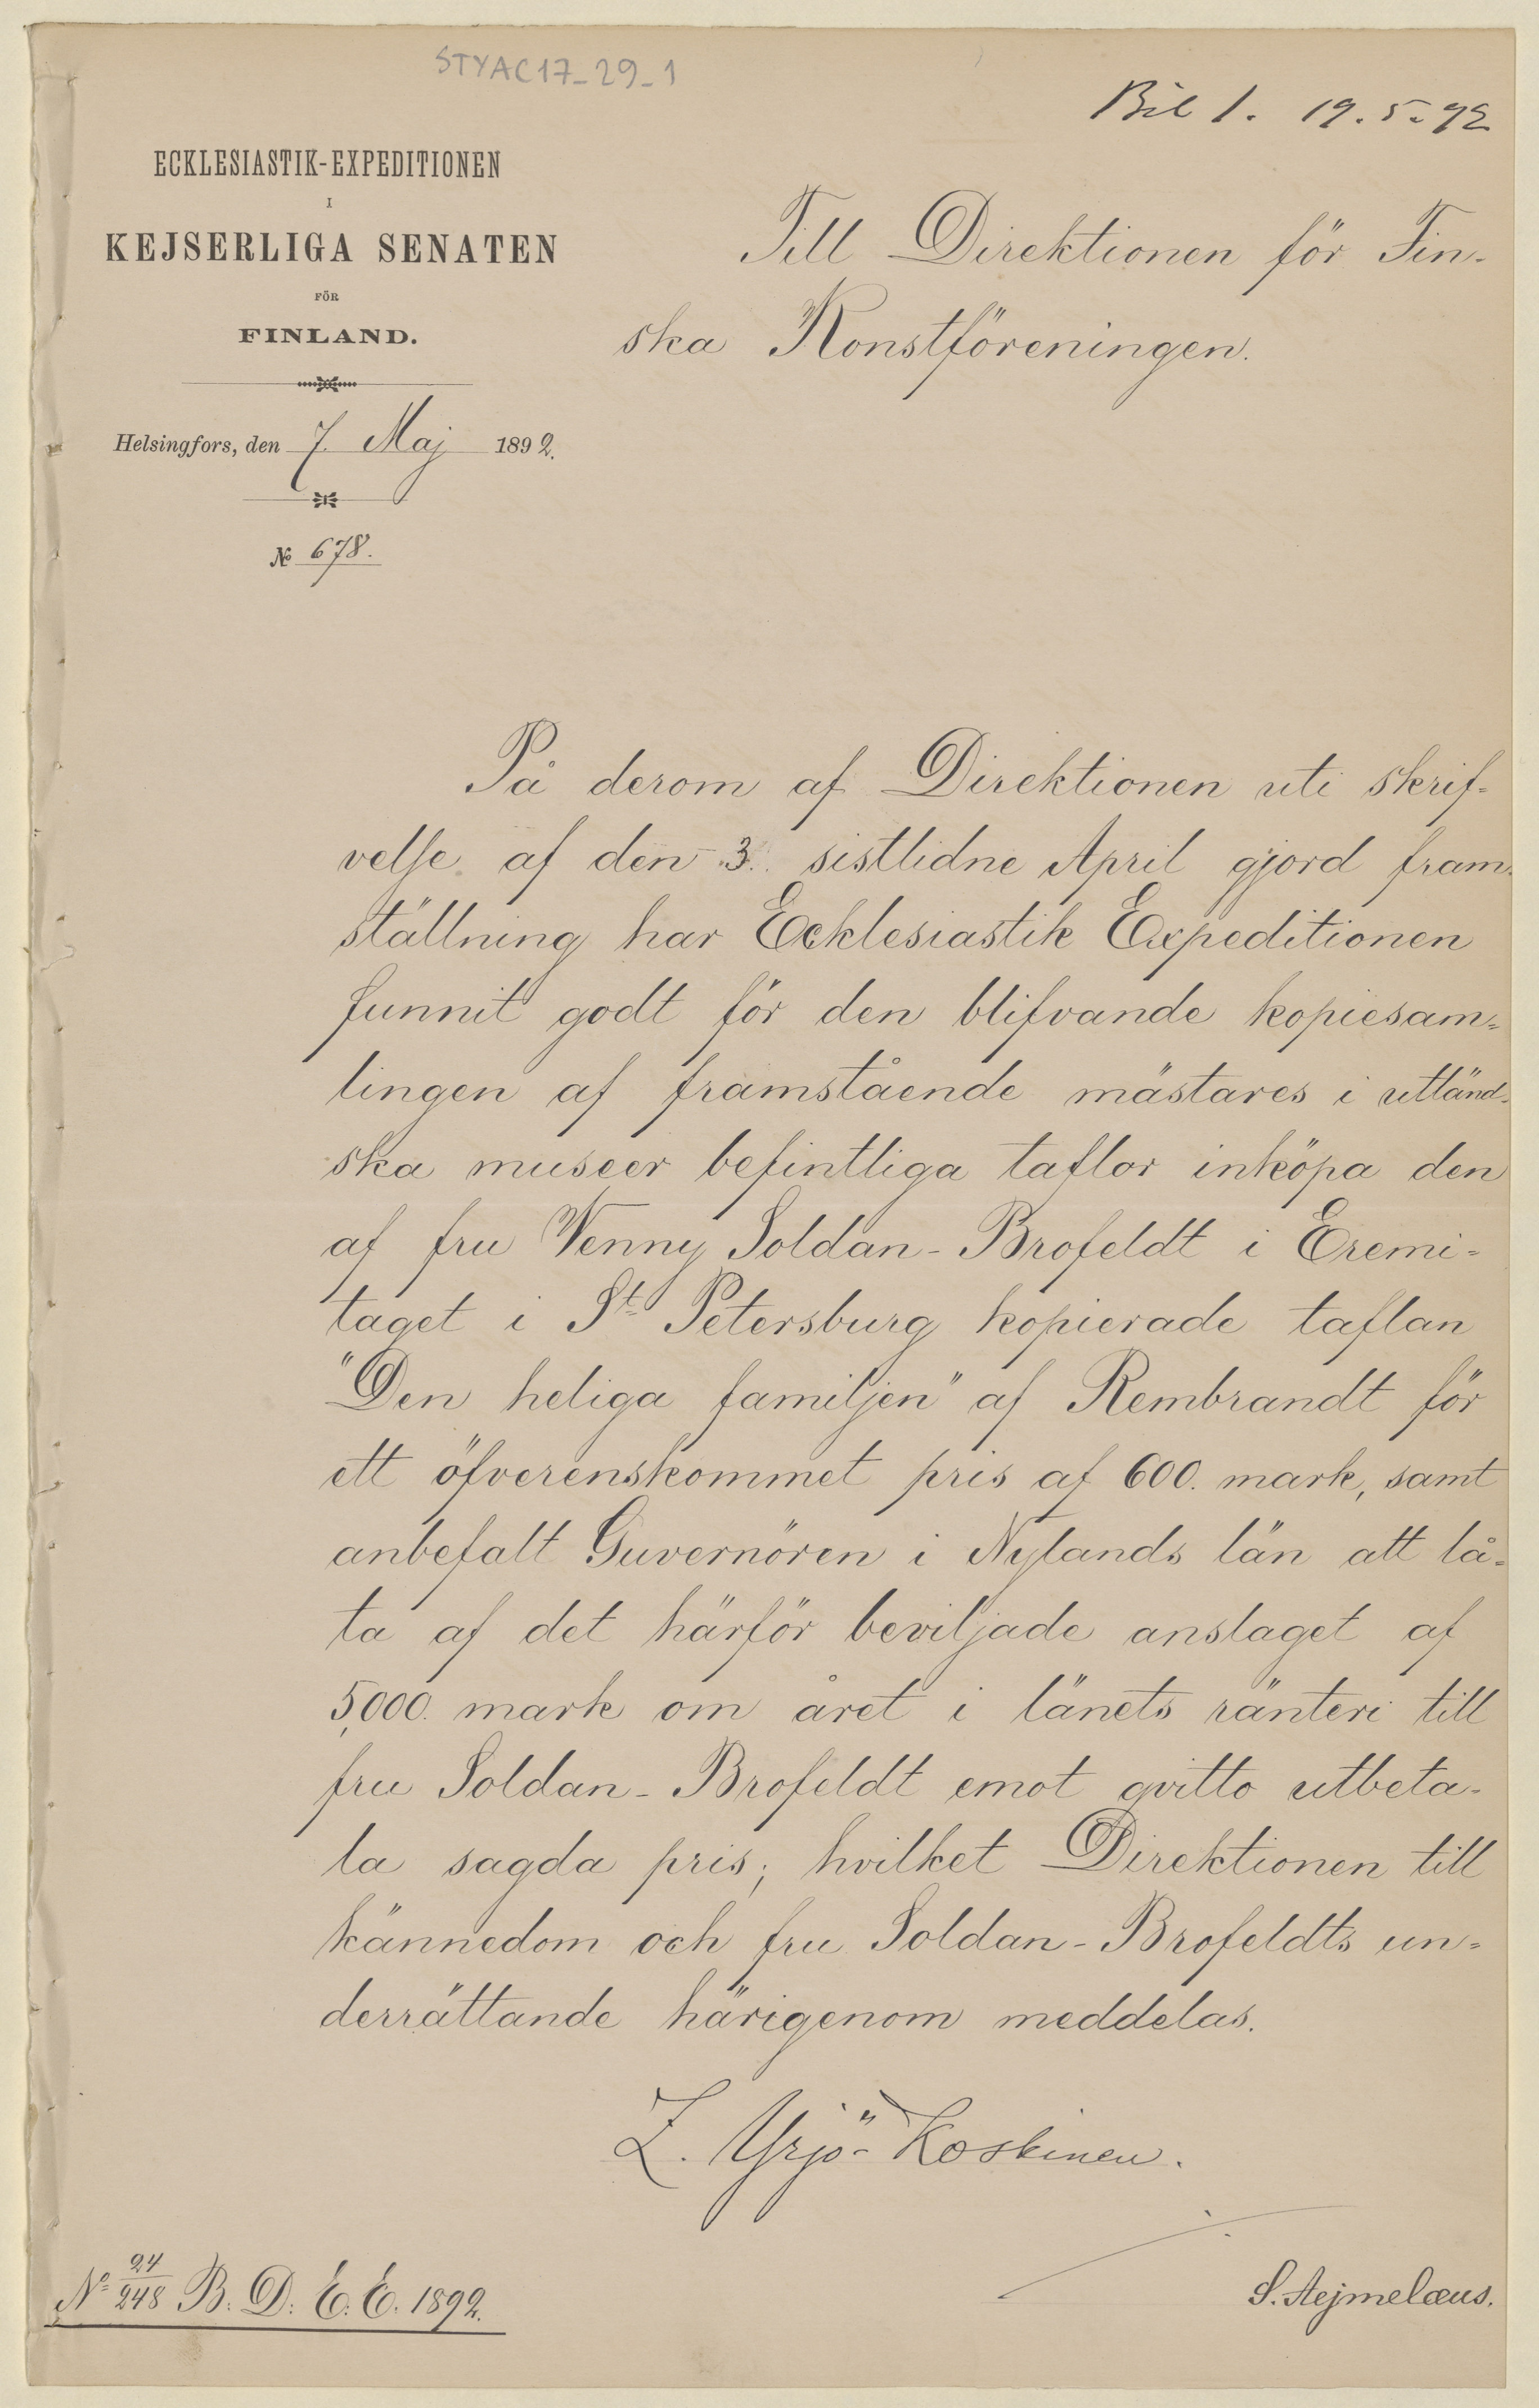 STYAC17_29_1
Bil 1. 19.5.92
ECKLESIASTIK-EXPEDITIONEN
I
KEJSERLIGA SENATEN
FÖR
FINLAND.
Helsingfors, den 7. Maj 1892.
№ 678.
Till Direktionen för Fin-
ska Konstföreningen.
På derom af Direktionen uti skrif-
velse af den 3. sistlidne April gjord fram-
ställning har Ecklesiastik Expeditionen
funnit godt för den blifvande kopiesam-
lingen af framstående mästares i utländ-
ska museer befintliga taflor inköpa den
af fru Venny Soldan-Brofeldt i Eremi-
taget i St Petersburg kopierade taflan
"Den heliga familjen" af Rembrandt för
ett öfverenskommet pris af 600. mark, samt
anbefalt Guvernören i Nylands län att lå-
ta af det härför beviljade anslaget af
5,000. mark om året i länets ränteri till
fru Soldan-Brofeldt emot qvitto utbeta-
la sagda pris; hvilket Direktionen till
kännedom och fru Soldan-Brofeldts un-
derrättande härigenom meddelas.
Z. Yrjö-Koskinen.
S. Stejmelæus.
No 24/248 B. D. E. E. 1892.